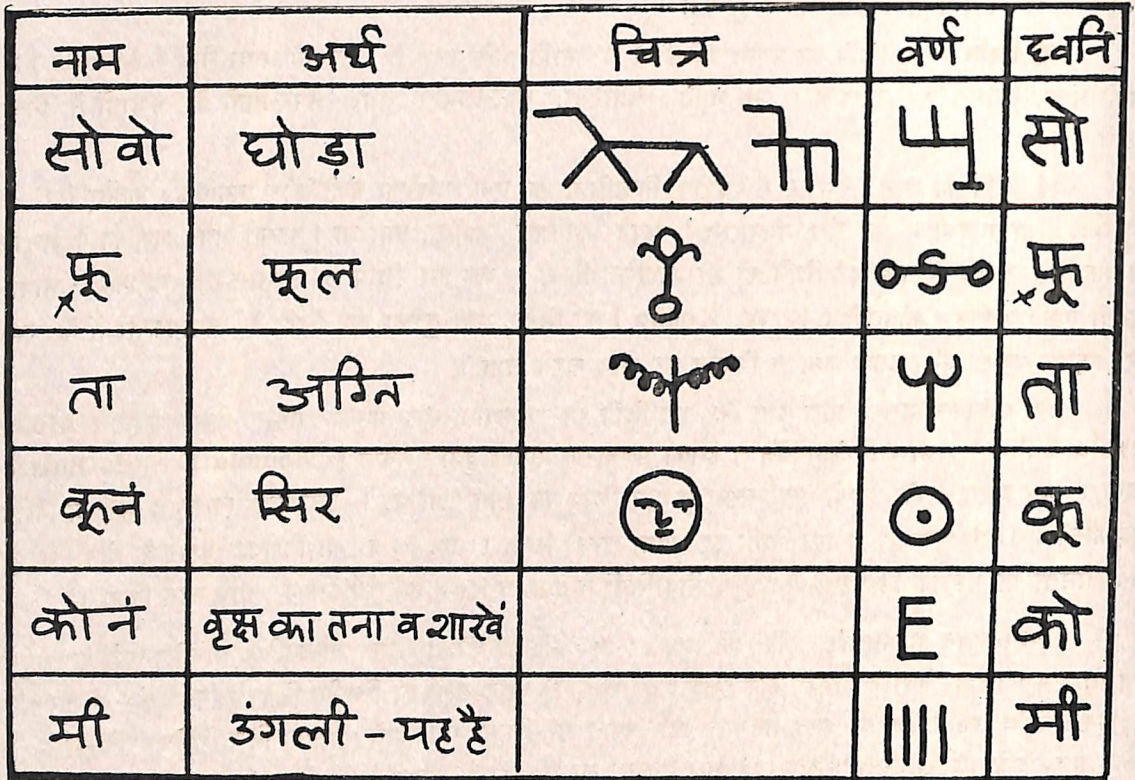 नाम अर्थ चित्र वर्ण ध्वनि
सोवो घोड़ा सो
फू फूल फू
ता अग्नि ता
कूनं सिर कू
कोनं वृक्ष का तना व शाखें E को
मी उंगली - यह है मी